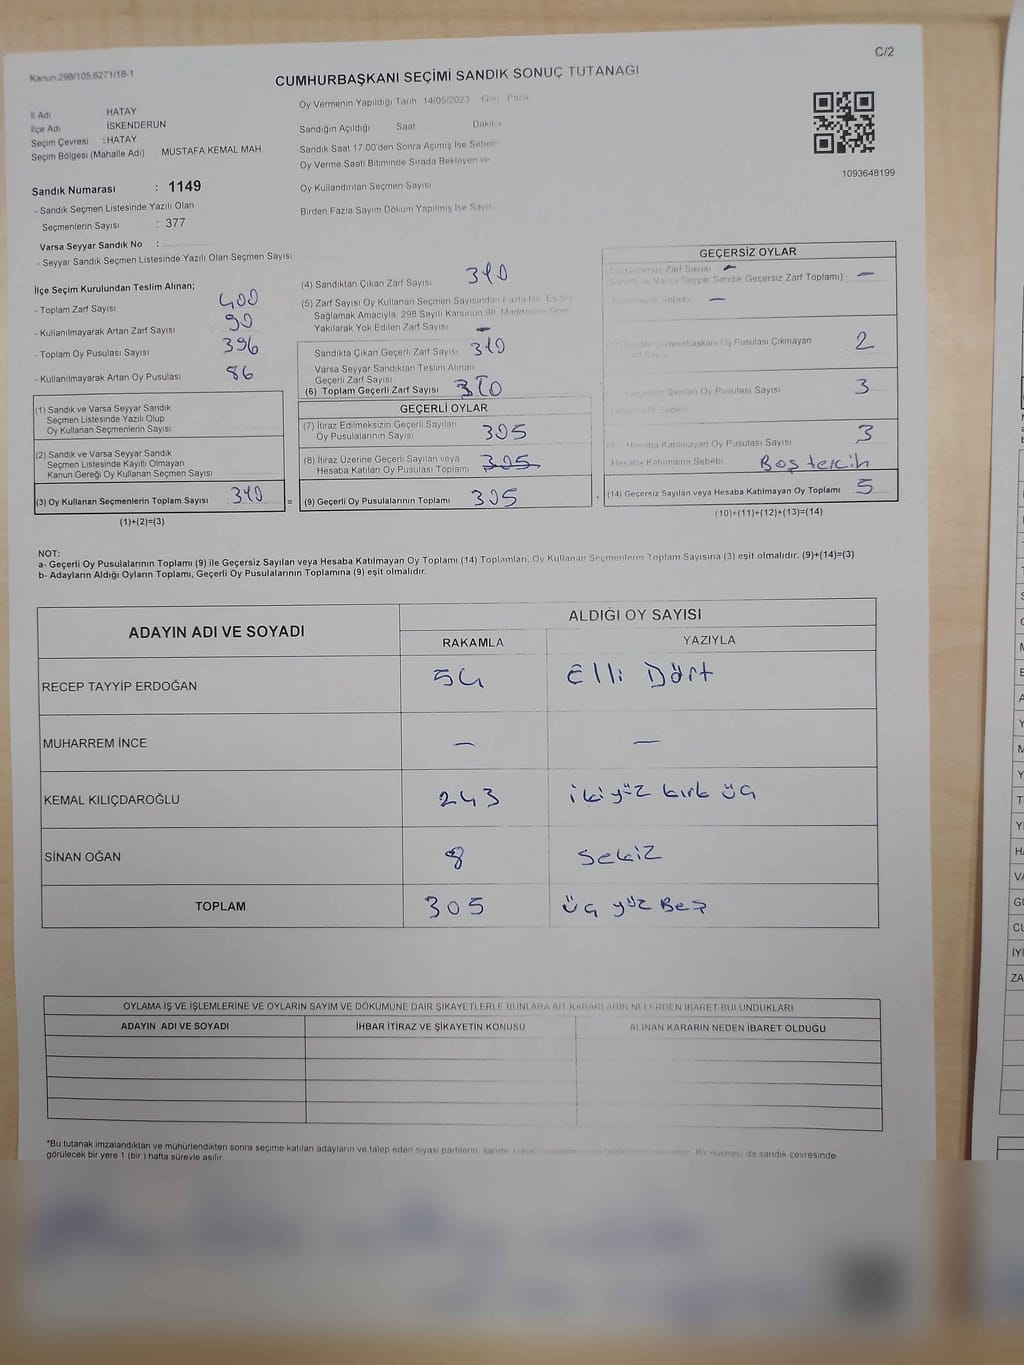 C/2
Kanun:298/105;6271/18-1
CUMHURBAŞKANI SEÇİMİ SANDIK SONUÇ TUTANAĞI
İl Adı HATAY
İlçe Adı İSKENDERUN
Seçim Çevresi : HATAY
Seçim Bölgesi (Mahalle Adı) : MUSTAFA KEMAL MAH.
Sandık Numarası : 1149
- Sandık Seçmen Listesinde Yazılı Olan
Seçmenlerin Sayısı : 377
Varsa Seyyar Sandık No :
- Seyyar Sandık Seçmen Listesinde Yazılı Olan Seçmen Sayısı
Oy Vermenin Yapıldığı Tarih 14/05/2023 Gün Pazar
Sandığın Açıldığı Saat Dakika
Sandık Saat 17:00'den Sonra Açımış İse Sebebi
Oy Verme Saati Bitiminde Sırada Bekleyen ve
Oy Kullandırılan Seçmen Sayısı
Birden Fazla Sayım Döküm Yapılmış İse Sayısı
1093648199
İlçe Seçim Kurulundan Teslim Alınan;
- Toplam Zarf Sayısı 400
- Kullanılmayarak Artan Zarf Sayısı 90
- Toplam Oy Pusulası Sayısı 396
- Kullanılmayarak Artan Oy Pusulası 86
(1) Sandık ve Varsa Seyyar Sandık
Seçmen Listesinde Yazılı Olup
Oy Kullanan Seçmenlerin Sayısı
(2) Sandık ve Varsa Seyyar Sandık
Seçmen Listesinde Kayıtlı Olmayan
Kanun Gereği Oy Kullanan Seçmen Sayısı
(3) Oy Kullanan Seçmenlerin Toplam Sayısı 310 =
(1)+(2)=(3)
(4) Sandıktan Çıkan Zarf Sayısı 310
(5) Zarf Sayısı Oy Kullanan Seçmen Sayısından Fazla İse, Eşitliği
Sağlamak Amacıyla 298 Sayılı Kanunun 98. Maddesine Göre
Yakılarak Yok Edilen Zarf Sayısı —
Sandıkta Çıkan Geçerli Zarf Sayısı 310
Varsa Seyyar Sandıktan Teslim Alınan
Geçerli Zarf Sayısı
(6) Toplam Geçerli Zarf Sayısı 310
GEÇERLİ OYLAR
(7) İtiraz Edilmeksizin Geçerli Sayılan
Oy Pusulalarının Sayısı 305
(8) İtiraz Üzerine Geçerli Sayılan veya
Hesaba Katılan Oy Pusulası Toplamı 305
(9) Geçerli Oy Pusulalarının Toplamı 305
GEÇERSİZ OYLAR
(10) Geçersiz Zarf Sayısı —
(Sandık ve Varsa Seyyar Sandık Geçersiz Zarf Toplamı) —
Sebebi —
Oy Pusulası Çıkmayan
2
Sayılan Oy Pusulası Sayısı 3
Hesaba Katılmayan Oy Pusulası Sayısı 3
Hesaba Katılmama Sebebi Boş tercih
(14) Geçersiz Sayılan veya Hesaba Katılmayan Oy Toplamı 5
(10)+(11)+(12)+(13)=(14)
NOT:
a- Geçerli Oy Pusulalarının Toplamı (9) ile Geçersiz Sayılan veya Hesaba Katılmayan Oy Toplamı (14) Toplamları, Oy Kullanan Seçmenlerin Toplam Sayısına (3) eşit olmalıdır. (9)+(14)=(3)
b- Adayların Aldığı Oyların Toplamı, Geçerli Oy Pusulalarının Toplamına (9) eşit olmalıdır.
ADAYIN ADI VE SOYADI ALDIĞI OY SAYISI
RAKAMLA YAZIYLA
RECEP TAYYİP ERDOĞAN 54 Elli Dört
MUHARREM İNCE — —
KEMAL KILIÇDAROĞLU 243 iki yüz kırk üç
SİNAN OĞAN 8 Sekiz
TOPLAM 305 üç yüz Beş
OYLAMA İŞ VE İŞLEMLERİNE VE OYLARIN SAYIM VE DÖKÜMÜNE DAİR ŞİKAYETLERLE BUNLARA AİT KARARLARIN NELERDEN İBARET BULUNDUKLARI
ADAYIN ADI VE SOYADI İHBAR İTİRAZ VE ŞİKAYETİN KONUSU ALINAN KARARIN NEDEN İBARET OLDUĞU
*Bu tutanak imzalandıktan ve mühürlendikten sonra seçime katılan adayların ve talep eden siyasi partilerin sandık Bir nüshası da sandık çevresinde
görülecek bir yere 1 (bir ) hafta süreyle asılır